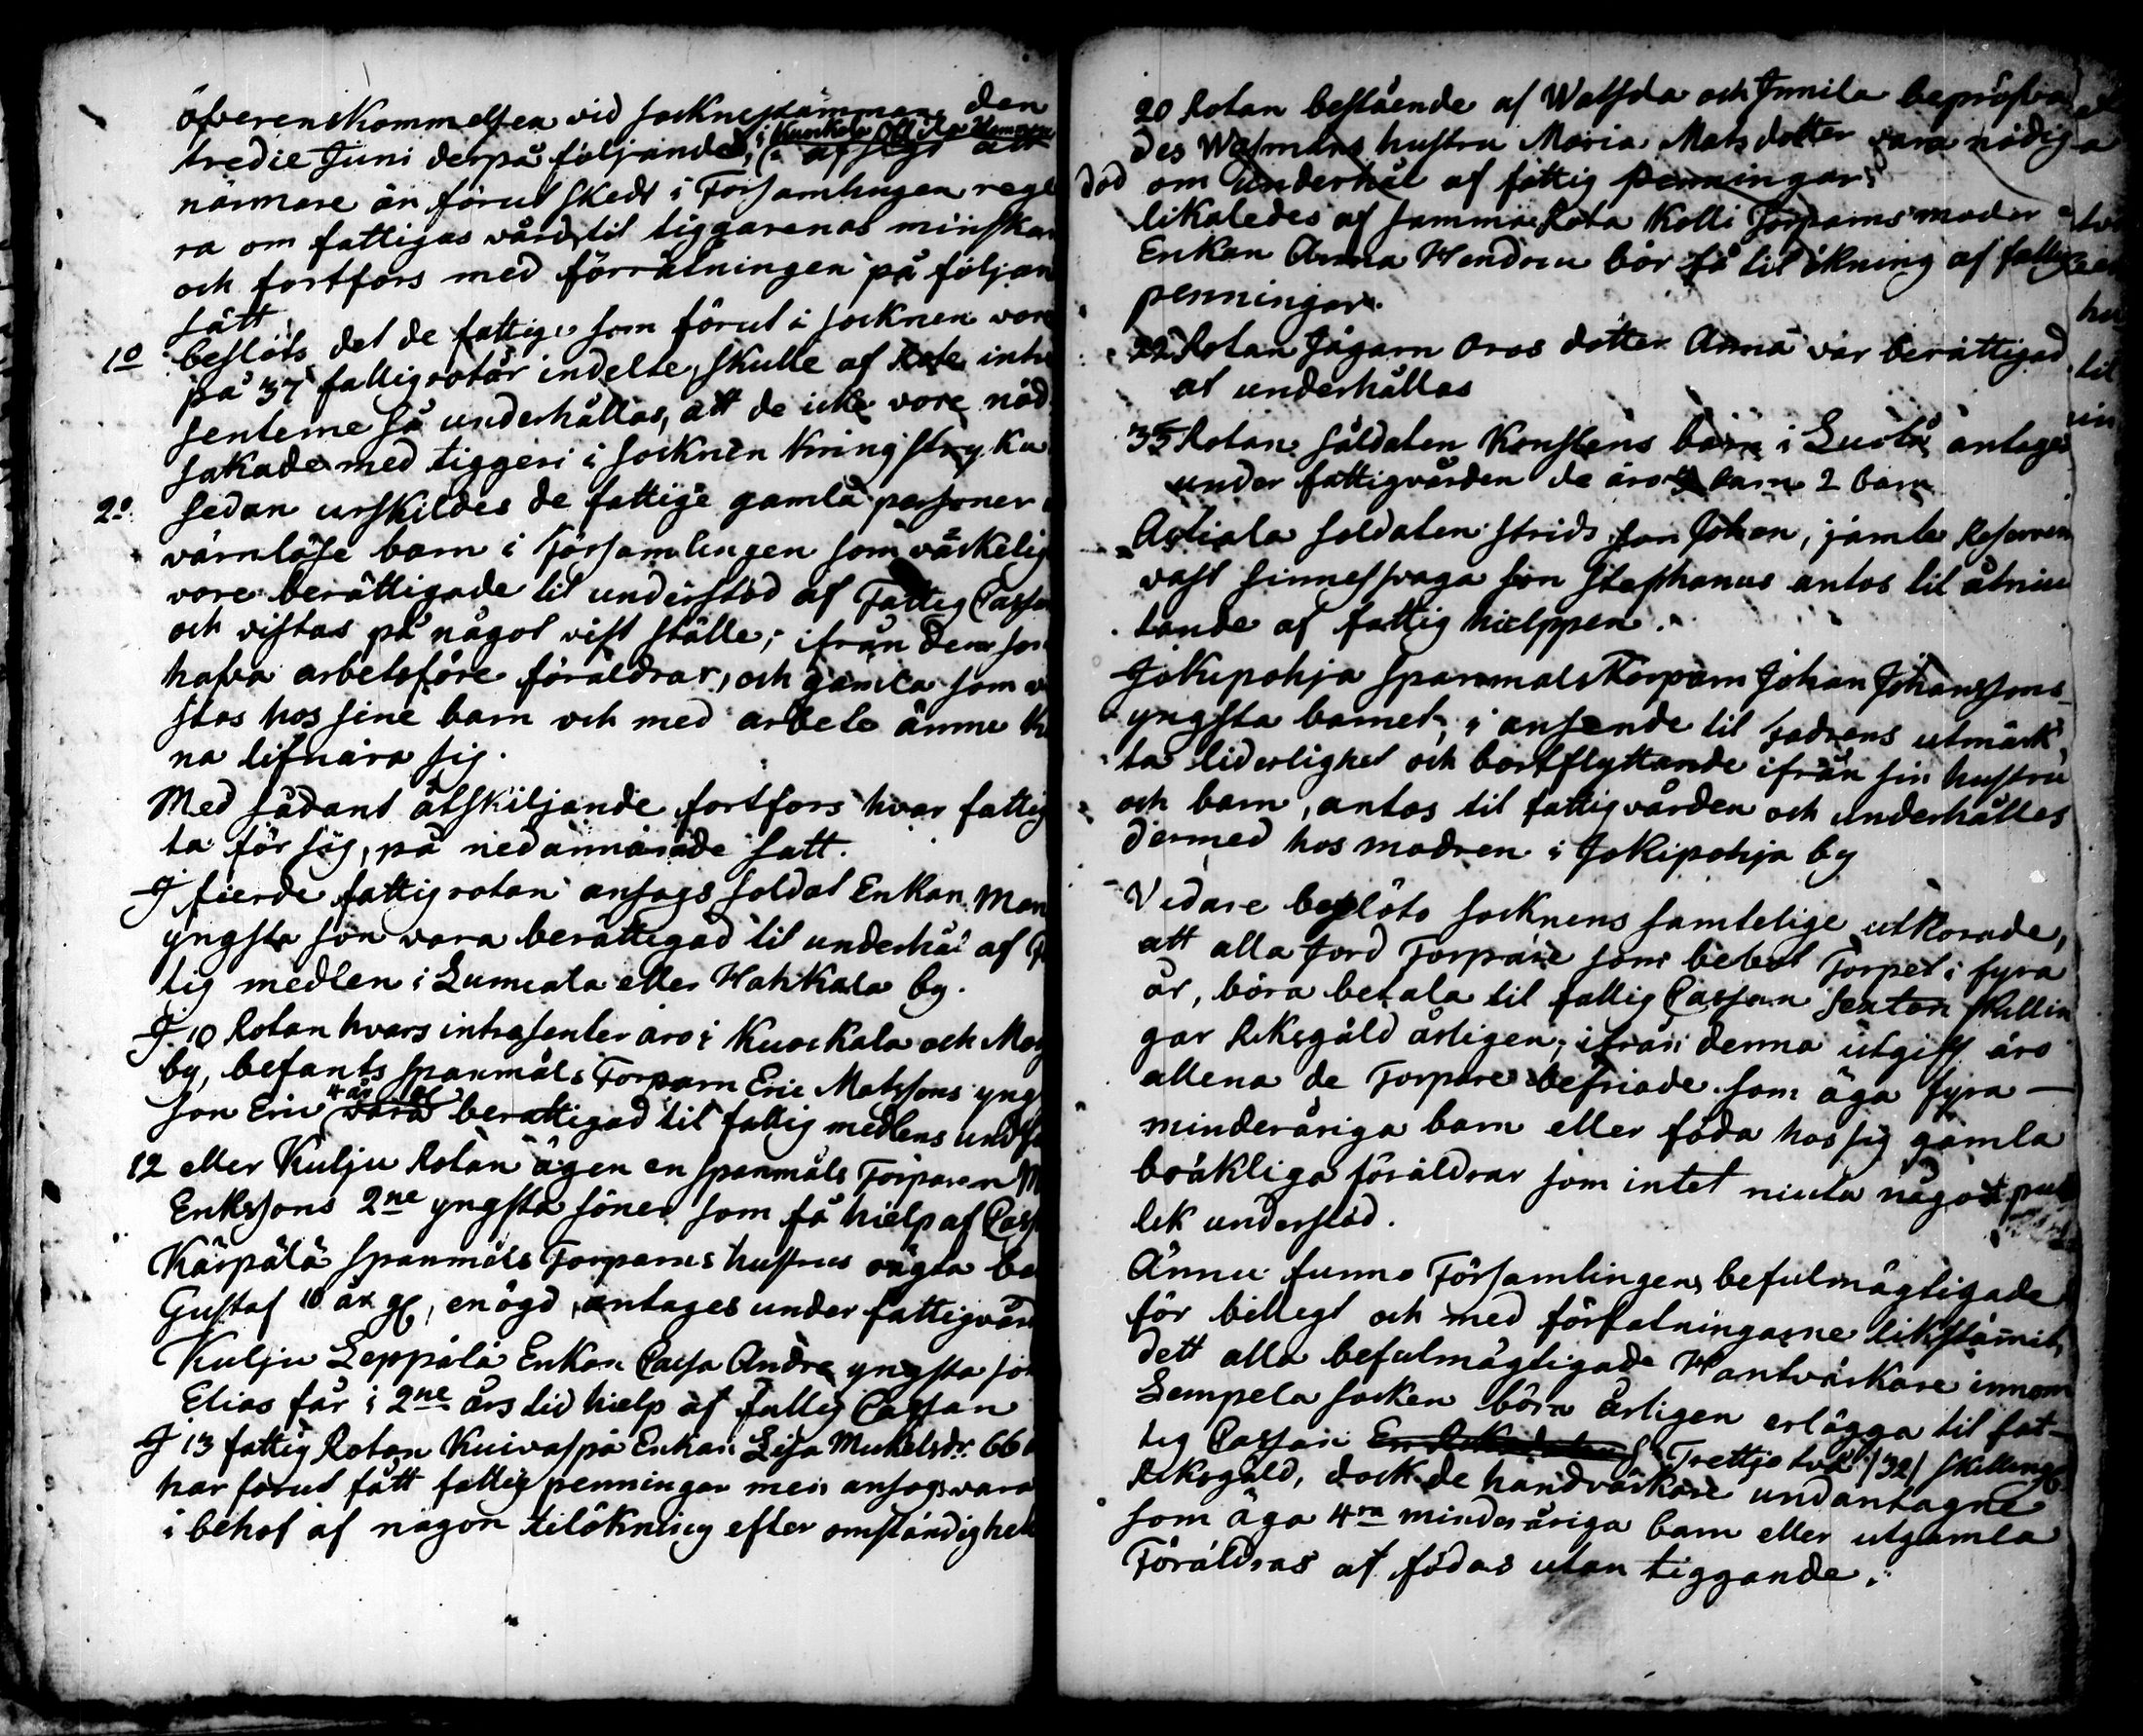 öfverenskommelsen vid socknestämman den
tredie Juni derpå följande, i Kuokala
närmare än förut skedt i Församlingen regl
ra om fattigas vård, til tiggarenas minska
och fortfors med förrätningen på följan
sätt
1o beslöts det de fattige som förut i socknen vore
på 37 fattigrotar indelte, skulle af Rote intre
senterne så underhållas, att de icke vore nöd
sakade med tiggeri i socknen kringstryka
2o Sedan urskildes de fattige gamla personer
värnlöse barn i Församlingen som värkelig
vore berättigade til understöd af Fattig Cassa
och vistas på något vist ställe; ifrån dem som
hafva arbetsföre föräldrar, och gamla som v
stas hos sine barn och med arbete ännu k
na lifnära sig.
Med sådant åtskiljande fortfors hvar fattig
ta för sig, på nedannämde satt.
I fierde fattigrotan ansags soldat Enkan Man
yngsta son vara berättigad til underhål af F
tig medlen i Lumiala eller Hahkala by.
I 10 Rotan hvars intrasenter äro i Kuokkala och Mo
by, befants spanmåls Torparn Eric Matssons yng
son Eric 4 år gl vara berattigad til fattig medlens undf
12 eller Kulju Rotan ägen en spanmåls Torparen M
Erikssons 2ne yngsta söner som få hielp af Cass
Kärpälä spanmåls Torparns hustrus oägta ba
Gustaf 10 år gl, enögd, antages under fattigvård
Kulju Leppälä Enkan Caisa Andre yngsta son
Elias får i 2ne års tid hielp af fattig Cassan
I 13 fattig Rotan Kuivaspä Enkan Lisa Mickelsdr. 66
har förut fått fattig penningar men ansogs vara
i behof af någon tilökning efter omständighet
20 Rotan bestående af Walsola och Junnila bepröfva
des Walmars hustru Maria Matsdotter vara nödig
död om underhål af fattig penningar,
likaledes af samma Rota Kolli Torparns moder
Enkan Anna Hendrica bör få til ökning af fattig
penningar.
22 Rotan Jägarn Oros dotter Anna var berättigad
at underhållas
35 Rotan soldaten Konstens barn i Luota antages
under fattigvården de äro barn 2 barn
Astiala soldaten strids son Johan, jämte Reserven
vast sinnessvaga son Stephanus antos til åtniu
tande af fattig hielppen.
Jokipohja spannmals Torparn Johan Johanssons
yngsta barnet, i anseende til Fadrens utmärk
ta liderlighet och bortflyttande ifrån sin hustru
och barn, antos til fattigvården och underhålles
dermed hos modren i Jokipohja by
Vidare beslöto socknens samtelige utkorade,
att alla Jord Torpare som bebot Torpet i fyra
år, böra betala til fattig Cassan sexton skillin
gar Riksgäld årligen; ifrån denna utgift äro
allena de Torpare befriade som äga fyra —
minderåriga barn eller föda hos sig gamla
bräkliga föräldrar som intet niuta något pub
lik understöd.
Ännu funno Församlingens befulmägtigade
för billegt och med författningarne likstämit,
dett alla befulmägtigade Hantvärkare innom
Lempela socken böra årligen erlägga til fat-
tig Cassan Trettjo två /32/ skillingar
Riksgäld, dock de handvärkare undantagne
som äga 4ra minderåriga barn eller utgamla
Föräldras at födas utan tiggande.